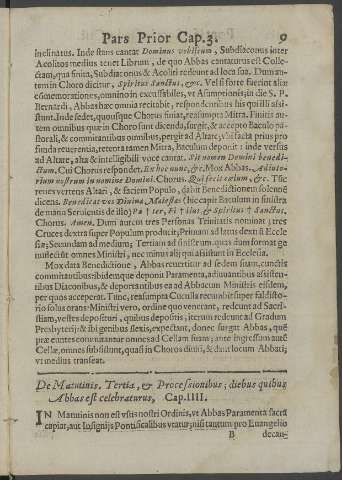 Pars Prior Cap. 3. 9
inclinatus. Inde stans cantat Dominus vobiscum, Subdiaconus inter
Acolitos medius tenet Librum, de quo Abbas cantaturus est Colle-
ctam, qua finita, Subdiaconus & Acoliti redeunt ad loca sua. Dum au-
tem in Choro dicitur, Spiritus Sanctus, &c. Vel si forte fuerint aliæ
cómemorationes, omnino in excussabiles, vt Assumptionis, in die S. P.
Bernardi, Abbas hæc omnia recitabit, respondentibus his qui illi assi-
stunt. Inde sedet, quousque Chorus finiat, reassumpta Mitra. Finitis au-
tem omnibus quæ in Choro sunt dicenda, surgit, & accepto Baculo pa-
storali, & comitantibus omnibus, pergit ad Altare, vbi facta prius pro
funda reuerentia, retenta tamen Mitra, Baculum deponit: inde versus
ad Altare, alta & intelligibili voce cantat. Sit nomen Domini benedi-
ctum. Cui Chorus respondet. Ex hoc nunc, &c. Mox Abbas. Adiuto-
rium nostrum in nomine Domini. Chorus. Qui fecit cælum, &c. Túc
renes vertens Altari, & faciem Populo, dabit Benedictionem solemné
dicens. Benedicat vos Divina Maiestas (hic capit Baculum in sinistra
de manu Seruientis de illo) Pa † ter, Fi † lius, & Spiritus † Sanctus,
Chorus. Amen. Dum autem tres Personas Trinitatis nominat; tres
Cruces dextra super Populum producit; Primam ad latus dextrú Eccle
siæ; Secundam ad medium; Tertiam ad sinistrum. quas dum format ge
nuflectút omnes Ministri, nec minus alij qui assistunt in Ecclesia.
Mox data Benedictione, Abbas reuertitur ad sedem suam, cunctis
comitantibus: ibidemque deponit Paramenta, adiuuantibus assisten-
tibus Diaconibus, & deportantibus ea ad Abbacum Ministris eisdem,
per quos acceperat. Tunc, reassumpta Cuculla recumbit super faldisto-
rio solus orans: Ministri vero, ordine quo venerant, redeunt ad Sacri-
stiam, vestes deposituri, quibus depositis, iterum redeunt ad Gradum
Presbyterij; & ibi genibus flexis, expectant, donec surgat Abbas, qué
præ euntes comitantur omnes ad Cellam suam; ante ingressum auté
Cellæ, omnes subsistunt, quasi in Choros diuisi, & dant locum Abbati,
vt medius transeat.
De Matutinis, Tertia, & Processionibus, diebus quibus
Abbas est celebraturus, Cap. IIII.
IN Matutinis non est vsus nostri Ordinis, vt Abbas Paramenta sacra
capiat, aut Insignijs Pontificalibus vtatur, nisi tantum pro Euangelio
B decan-